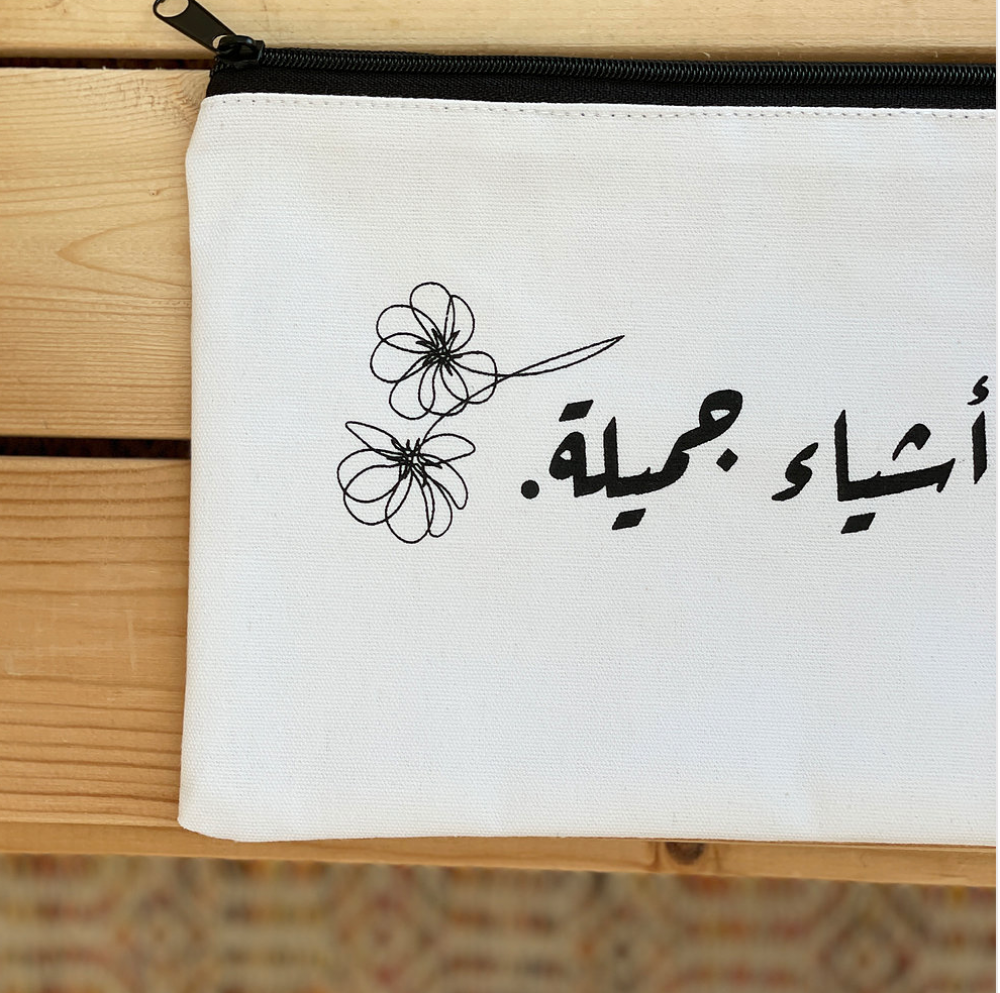 أشياء جميلة.